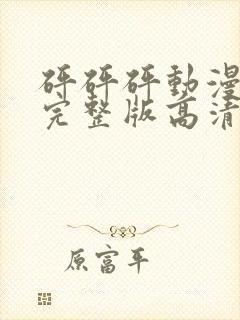 砰砰砰動漫
完整版高清
原富平